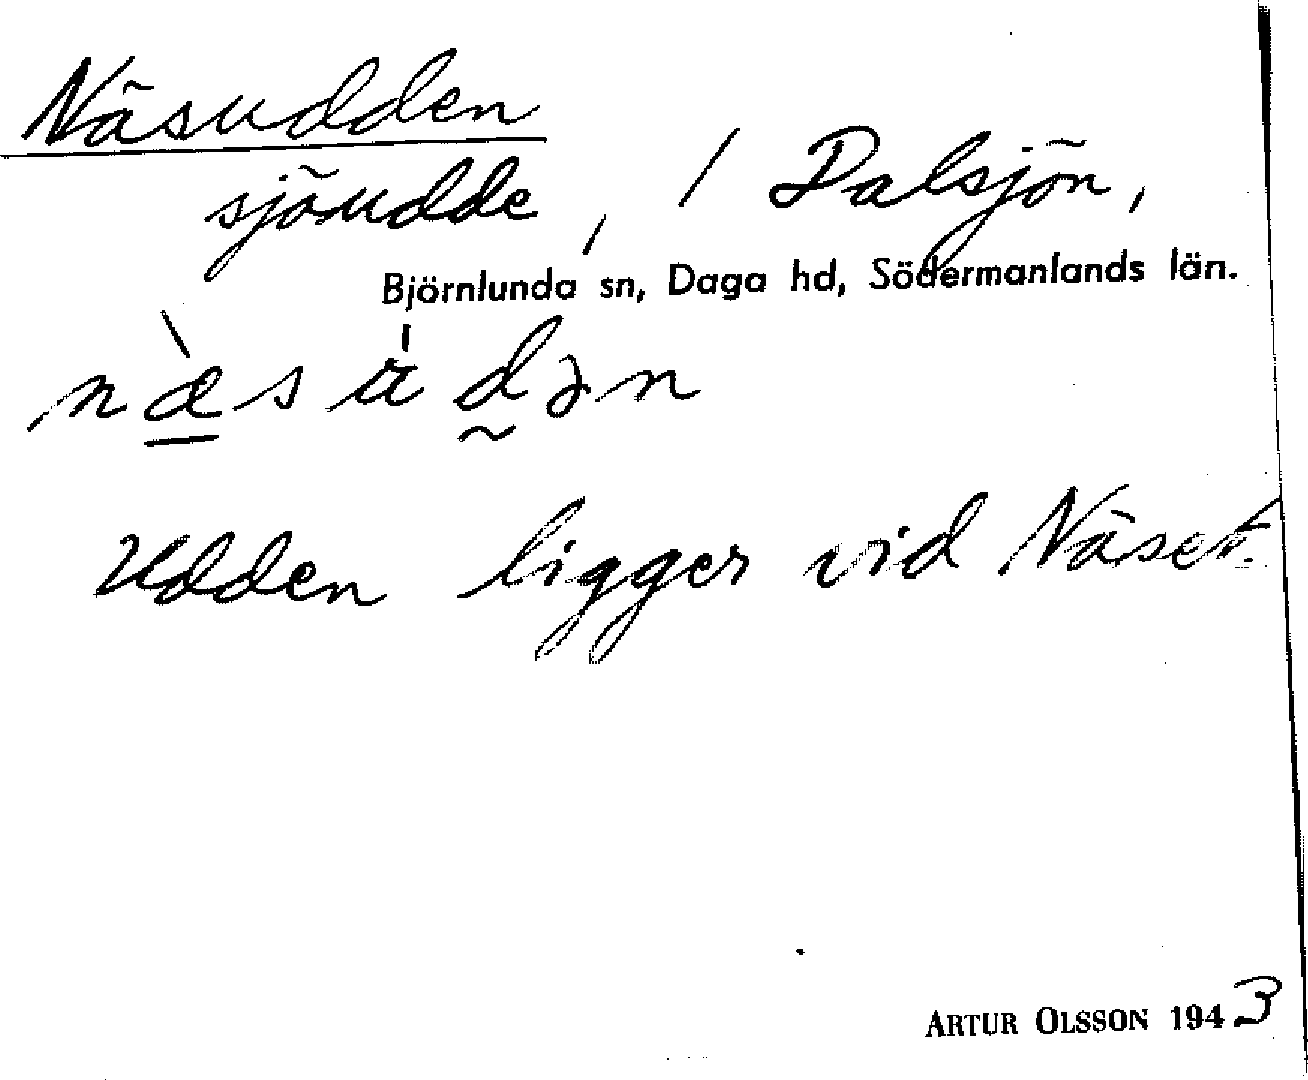 Näsudden
sjöudde, i Dalsjön,
Björnlunda sn, Daga hd, Södermanlands län.
næ̀sùdən
Udden ligger vid Näset.
ARTUR OLSSON 1943